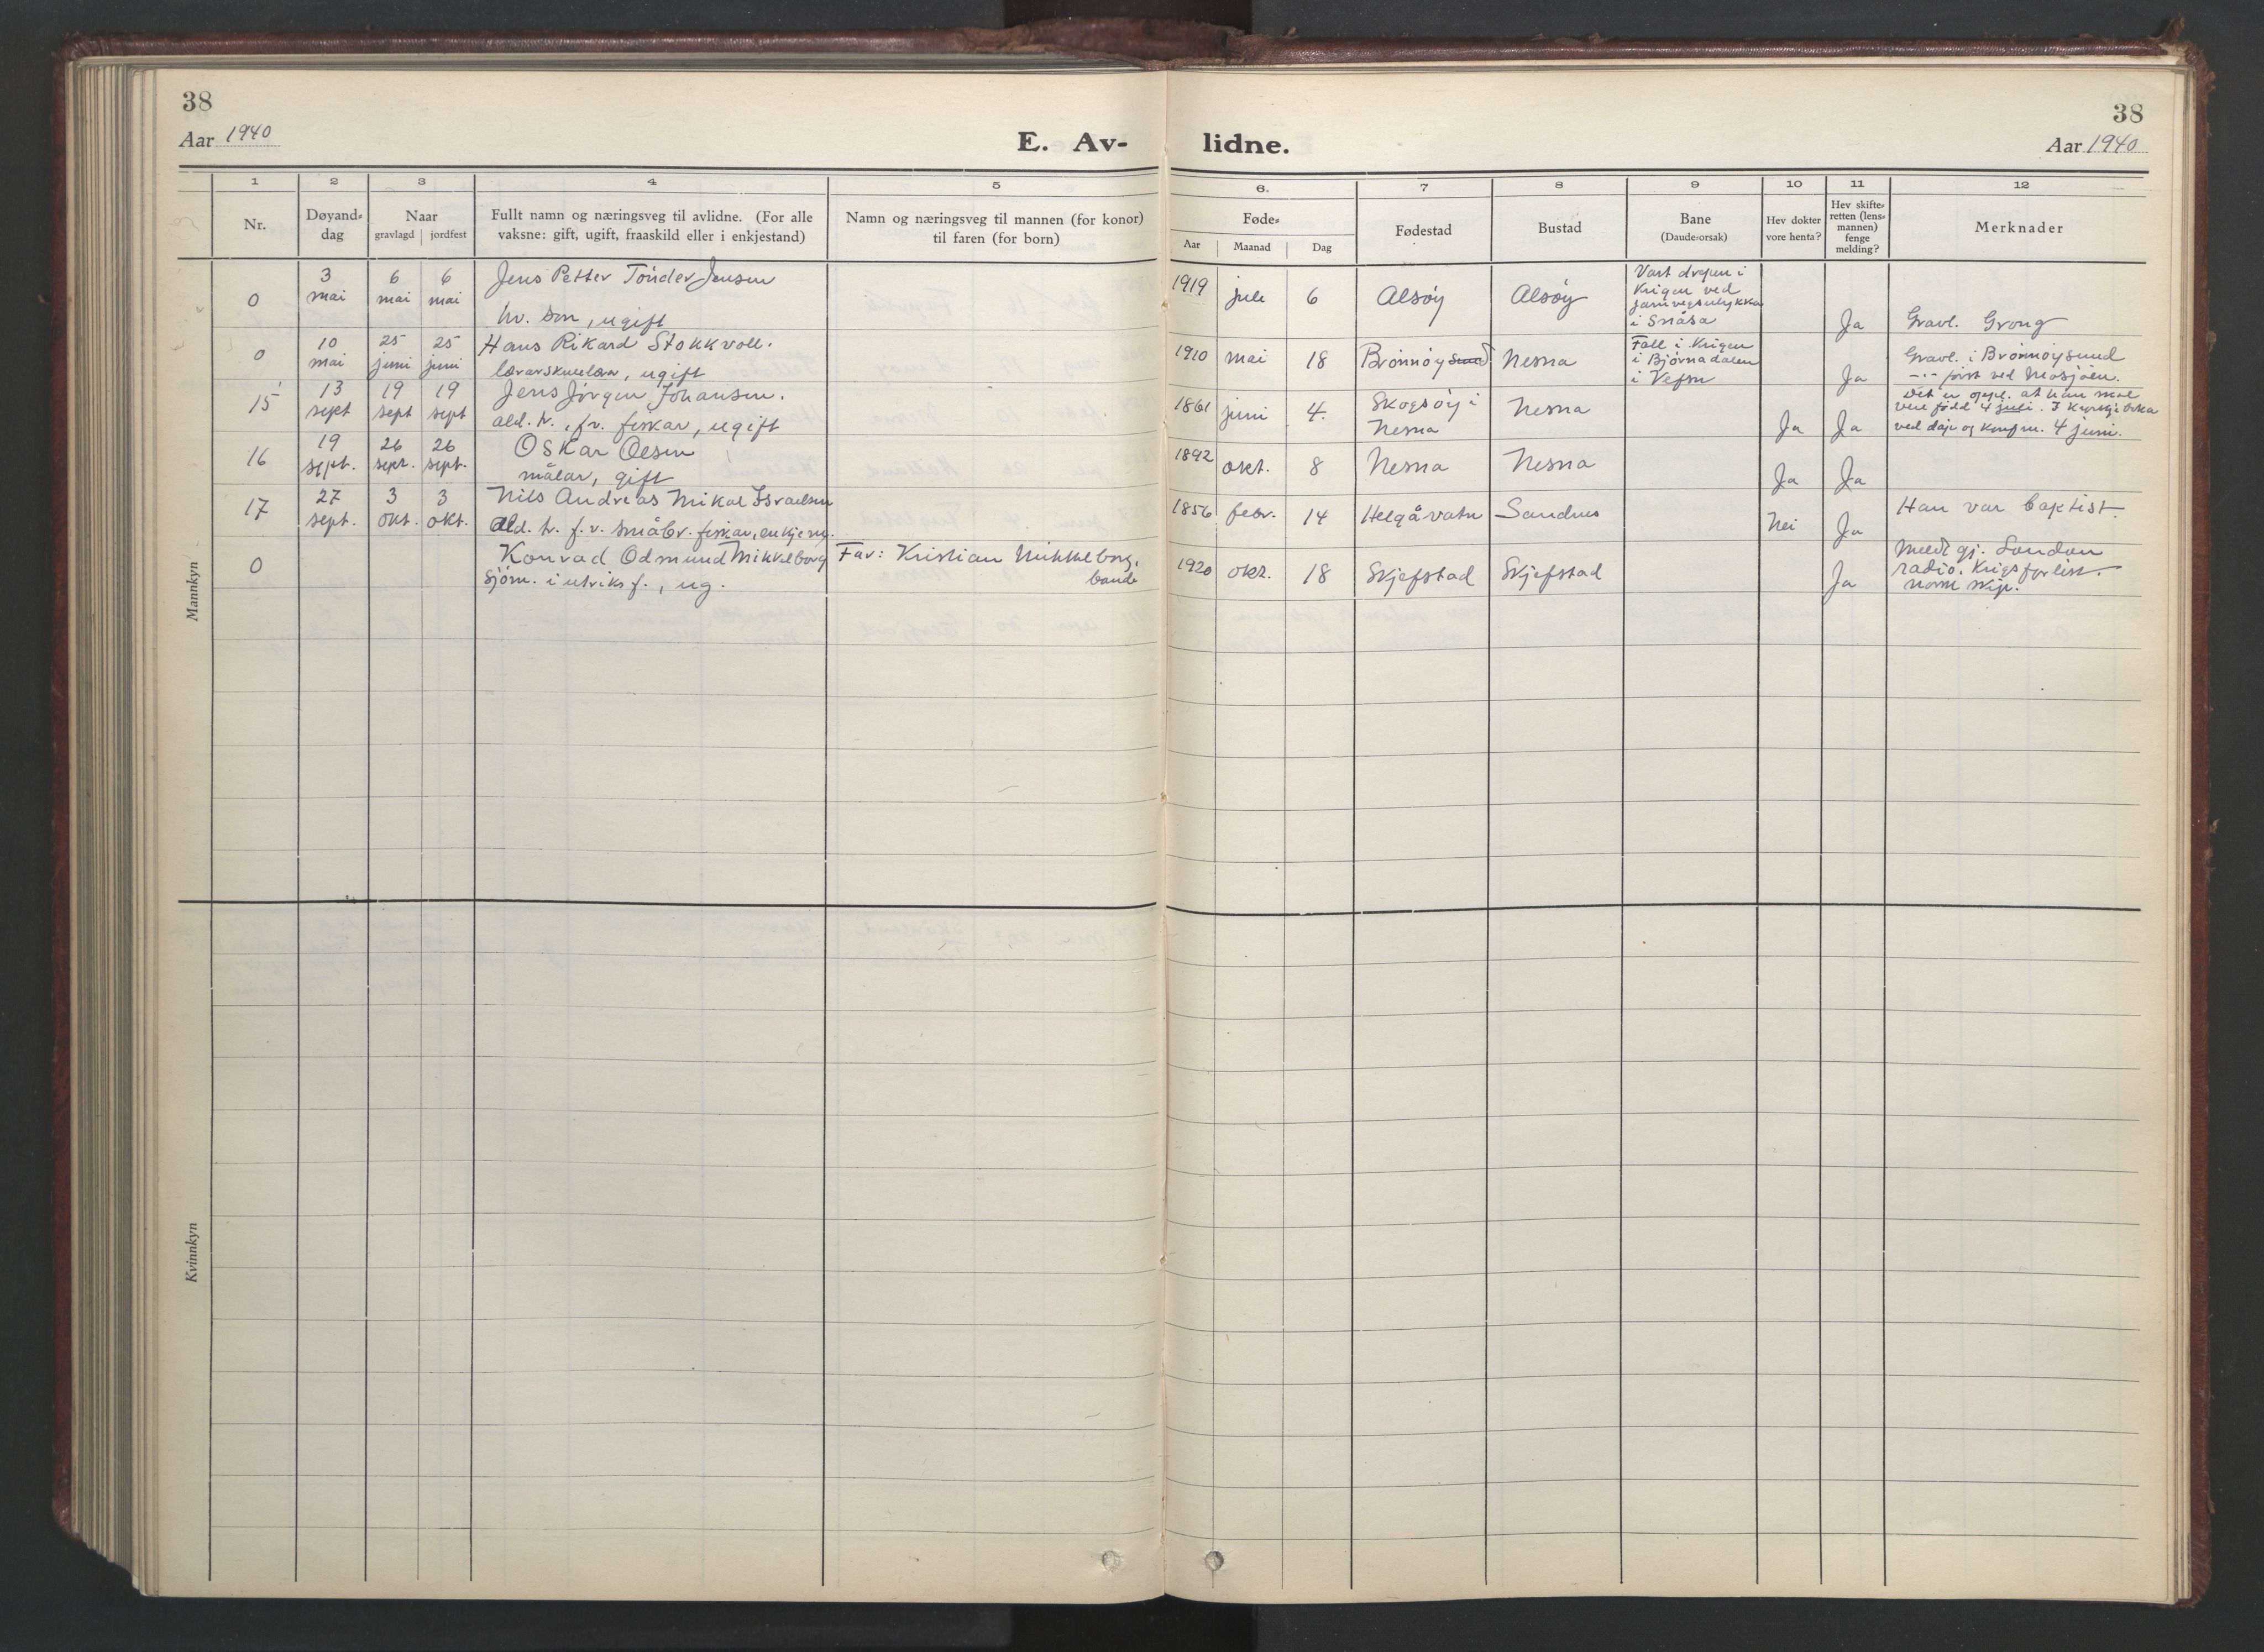 38
Aar 1940
E. Av-
lidne.
38
Aar 1940
1 2 3 4 5 6. 7 8 9 10 11 12
Nr.
Døyand-
dag
Naar
gravlagd jordfest
Fullt namn og næringsveg til avlidne. (For alle
vaksne: gift, ugift, fraaskild eller i enkjestand)
Namn og næringsveg til mannen (for konor)
til faren (for born)
Føde-
Aar Maanad Dag
Fødestad
Bustad
Bane
(Daude-orsak)
Hev dokter
vore henta?
Hev skifte-
retten (lens-
mannen)
fenge
melding?
Merknader
Mannkyn
0
3
mai
6
mai
6
mai
Jens Petter Tønder Jensen
hv. son, ugift
1919 juli 6
Alsøy
Alsøy
Vart drepen i
krigen ved
jarnvegsulykka
i Snåsa
Ja
Gravl. Grong
0
10
mai
25
juni
25
juni
Hans Rikard Stokkvoll.
lærarskuelærar, ugift
1910 mai 18
Brønnøysund
Nesna
Fall i krigen
i Bjørnadalen
i Vefsn
Ja
Gravl. i Brønnøysund
-"- först ved Mosjøen.
15
13
sept
19
sept
19
sept
Jens Jørgen Johansen.
ald. tr., fv. fiskar, ugift
1861 juni 4.
Skogsøy i
Nesna
Nesna
Ja
Ja
Det er oppl. at han skal
vere född 4 juli. I kyrkjeboka
ved dåp og konfirm. 4 juni.
16
19
sept.
26
sept.
26
sept.
Oskar Olsen
målar, gift
1892 okt. 8
Nesna
Nesna
Ja
Ja
17
27
sept.
3
okt.
3
okt.
Nils Andreas Mikal Israelsen
ald. tr. f.v. småbr. fiskar, enkjem.
1856 febr. 14
Helgåvatn
Sandnes
Nei
Ja
Han var baptist.
0
Konrad Odmund Mikkelborg
sjöm. i utriksf., ug.
Far: Kristian Mikkelborg,
bonde
1920 okt. 18
Skjefstad
Skjefstad
Ja
Meldt gj. London
radio. Krigsforlist
norsk skip.
Kvinnkyn